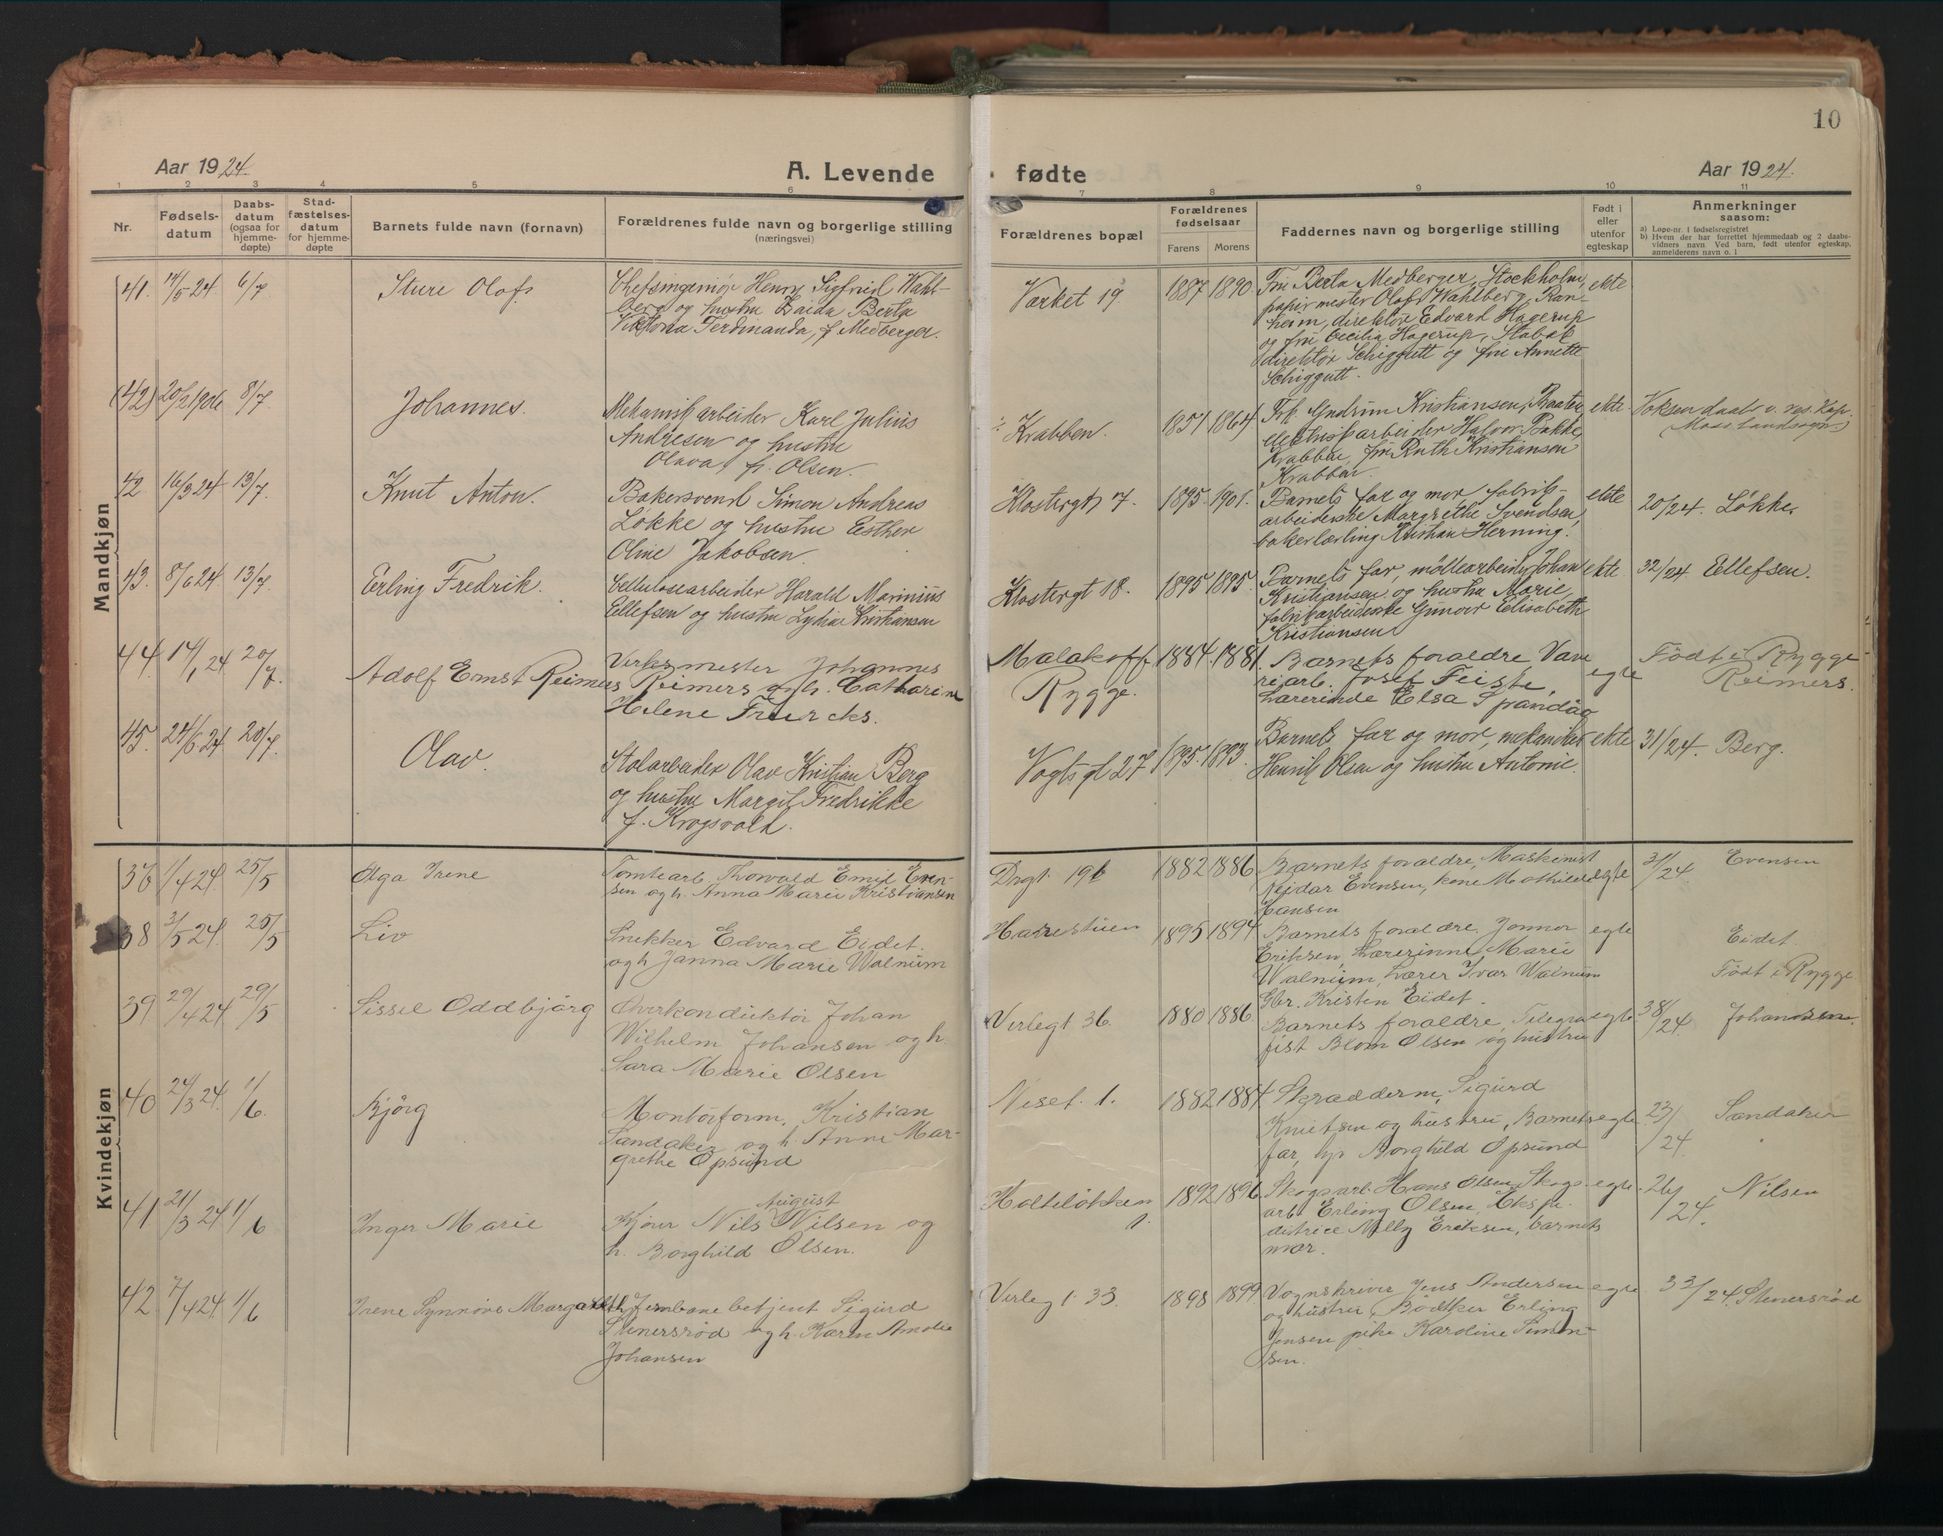 10
Aar 1924.
A. Levende
fødte
Aar 1924.
1 2 3 4 5 6 7 8 9 10 11
Nr.
Fødsels-
datum
Daabs-
datum
(ogsaa for
hjemme-
døpte)
Stad-
fæstelses-
datum
for hjemme-
døpte
Barnets fulde navn (fornavn)
Forældrenes fulde navn og borgerlige stilling
(næringsvei)
Forældrenes bopæl
Forældrenes
fødselsaar
Farens Morens
Faddernes navn og borgerlige stilling
Født i
eller
utenfor
egteskap
Anmerkninger
saasom:
a) Løpe-nr. i fødselsregistret
b) Hvem der har forrettet hjemmedaab og 2 daabs-
vidners navn Ved barn, født utenfor egteskap,
anmelderens navn o. l
Mandkjøn
41. 14/5 24 6/7 Sture Olof
Chefsingeniør Henry Sigfrid Wahl-
berg og hustru Zaida Berta
Viktoria Ferdinanda, f. Medberger.
Verket 19
1887 1890
Fru Berta Medberger, Stockholm,
papirmester Olof Wahlberg, Ran-
heim, direktør Edvard Hagerup
og fru Cecilia Hagerup, Stabæk
direktør Schiggutt og fru Annette
Schiggutt.
ekte
(42) 20/2 1906 8/7 Johannes.
Mekanisk arbeider Karl Julius
Andresen og hustru
Olava f. Olsen.
Krabben.
1851 1864
Frk. Gudrun Kristiansen, Braaten
elektrisk arbeider Halvor Bakke,
Krabben, fru Ruth Kristiansen
Krabben.
ekte
Voksen daab v. res. Kap.
Moss landssogn
42 16/3 24 13/7 Knut Anton.
Bakersvend Simon Andreas
Løkke og hustru Esther
Oline Jakobsen.
Klostergt 7.
1895. 1901.
Barnets far og mor, fabrik-
arbeiderske Margrethe Svendsen,
bakerlærling Kristian Herning.
ekte
20/24. Løkke.
43. 8/6 24 13/7 Erling Fredrik.
Cellulosearbeider Harald Marinius
Ellefsen og hustru Lydia Kristiansen
Klostergt 18.
1895 1895.
Barnets far, møllearbeider Johan
Kristiansen og hustru Marie,
fabrikarbeiderske Gunvor Elisabeth
Kristiansen
ekte
32/24 Ellefsen.
44. 14/1 24 20/7 Adolf Ernst Reimers
Verksmester Johannes
Reimers og h. Catharine
Helene Freircks.
Malakoff
Rygge.
1884. 1881.
Barnets foraldre Vave
riarb. Josef Feiste,
Lærerinde Elsa Spandag
egte
Født i Rygge
Reimers.
45. 24/6 24. 20/7. Olav.
Stolarbeider Olav Kristian Berg
og hustru Margit Fredrikke
f. Krogsvold.
Vogts gt 27
1895. 1893.
Barnets far og mor, mekaniker
Henrik Olsen og hustru Antonie.
ekte
31/24. Berg.
Kvindekjøn
1/4 24. 25/5 Olga Irene
Tomtearb. Thorvald Emil Even-
sen og h. Anna Marie Kristiansen
1882 1886
Barnets foraldre, Maskinist
Reidar Evensen, kone Mathilde
Hansen
egte
31/24 Evensen
38 3/5 24. 25/5 Liv
Snekker Edvard Eidet.
og h Janna Marie Walnum
Harestuen
1895 1894
Barnets foraldre. Jomnor
Eriksen, Lærerinne Marie
Walnum, Lærer Ivar Walnum
Gbr. Kristen Eidet.
egte
Eidet.
Født i Rygge
39 29/4 24 29/5 Sissel Oddbjørg
Overkonduktør Johan
Wilhelm Johansen og h.
Sara Marie Olsen
Verlegt 36.
1880 1886
Barnets foraldre, Telegra
fist Blom Olsen og hustru
egte
38/24. Johansen.
40 24/3 24. 1/6. Bjørg
Montørform, Kristian
Sandaker og h. Anne Mar-
grethe Opsund
Neset. 1.
1882 1884
Skradderm, Sigurd
Knutsen og hustru, Barnets
far, Borghild Opsund
egte
23/24. Sandaker
41 21/3 24 1/6 Inger Marie
August
Kjøur Nils Nilsen og
h. Borghild Olsen.
Holteløkken
1.
1892 1896
Skogsarb. Hans Olsen, Skogs-
arb. Erling Olsen, Ekspe-
ditrice Nelly Eriksen, barnets
mor.
egte
26/24. Nilsen
42 7/4 24. 1/6 Irene Synnøve Margareth
Jernbanebetjent Sigurd
Stenersrød og h. Karen Amalie
Johansen
Verleg t. 33.
1898 1899
Vognskriver Jens Andersen
og hustru, Bødtker Erling
Jensen pike Karoline Simon-
sen.
egte
33/24. Stenersrød